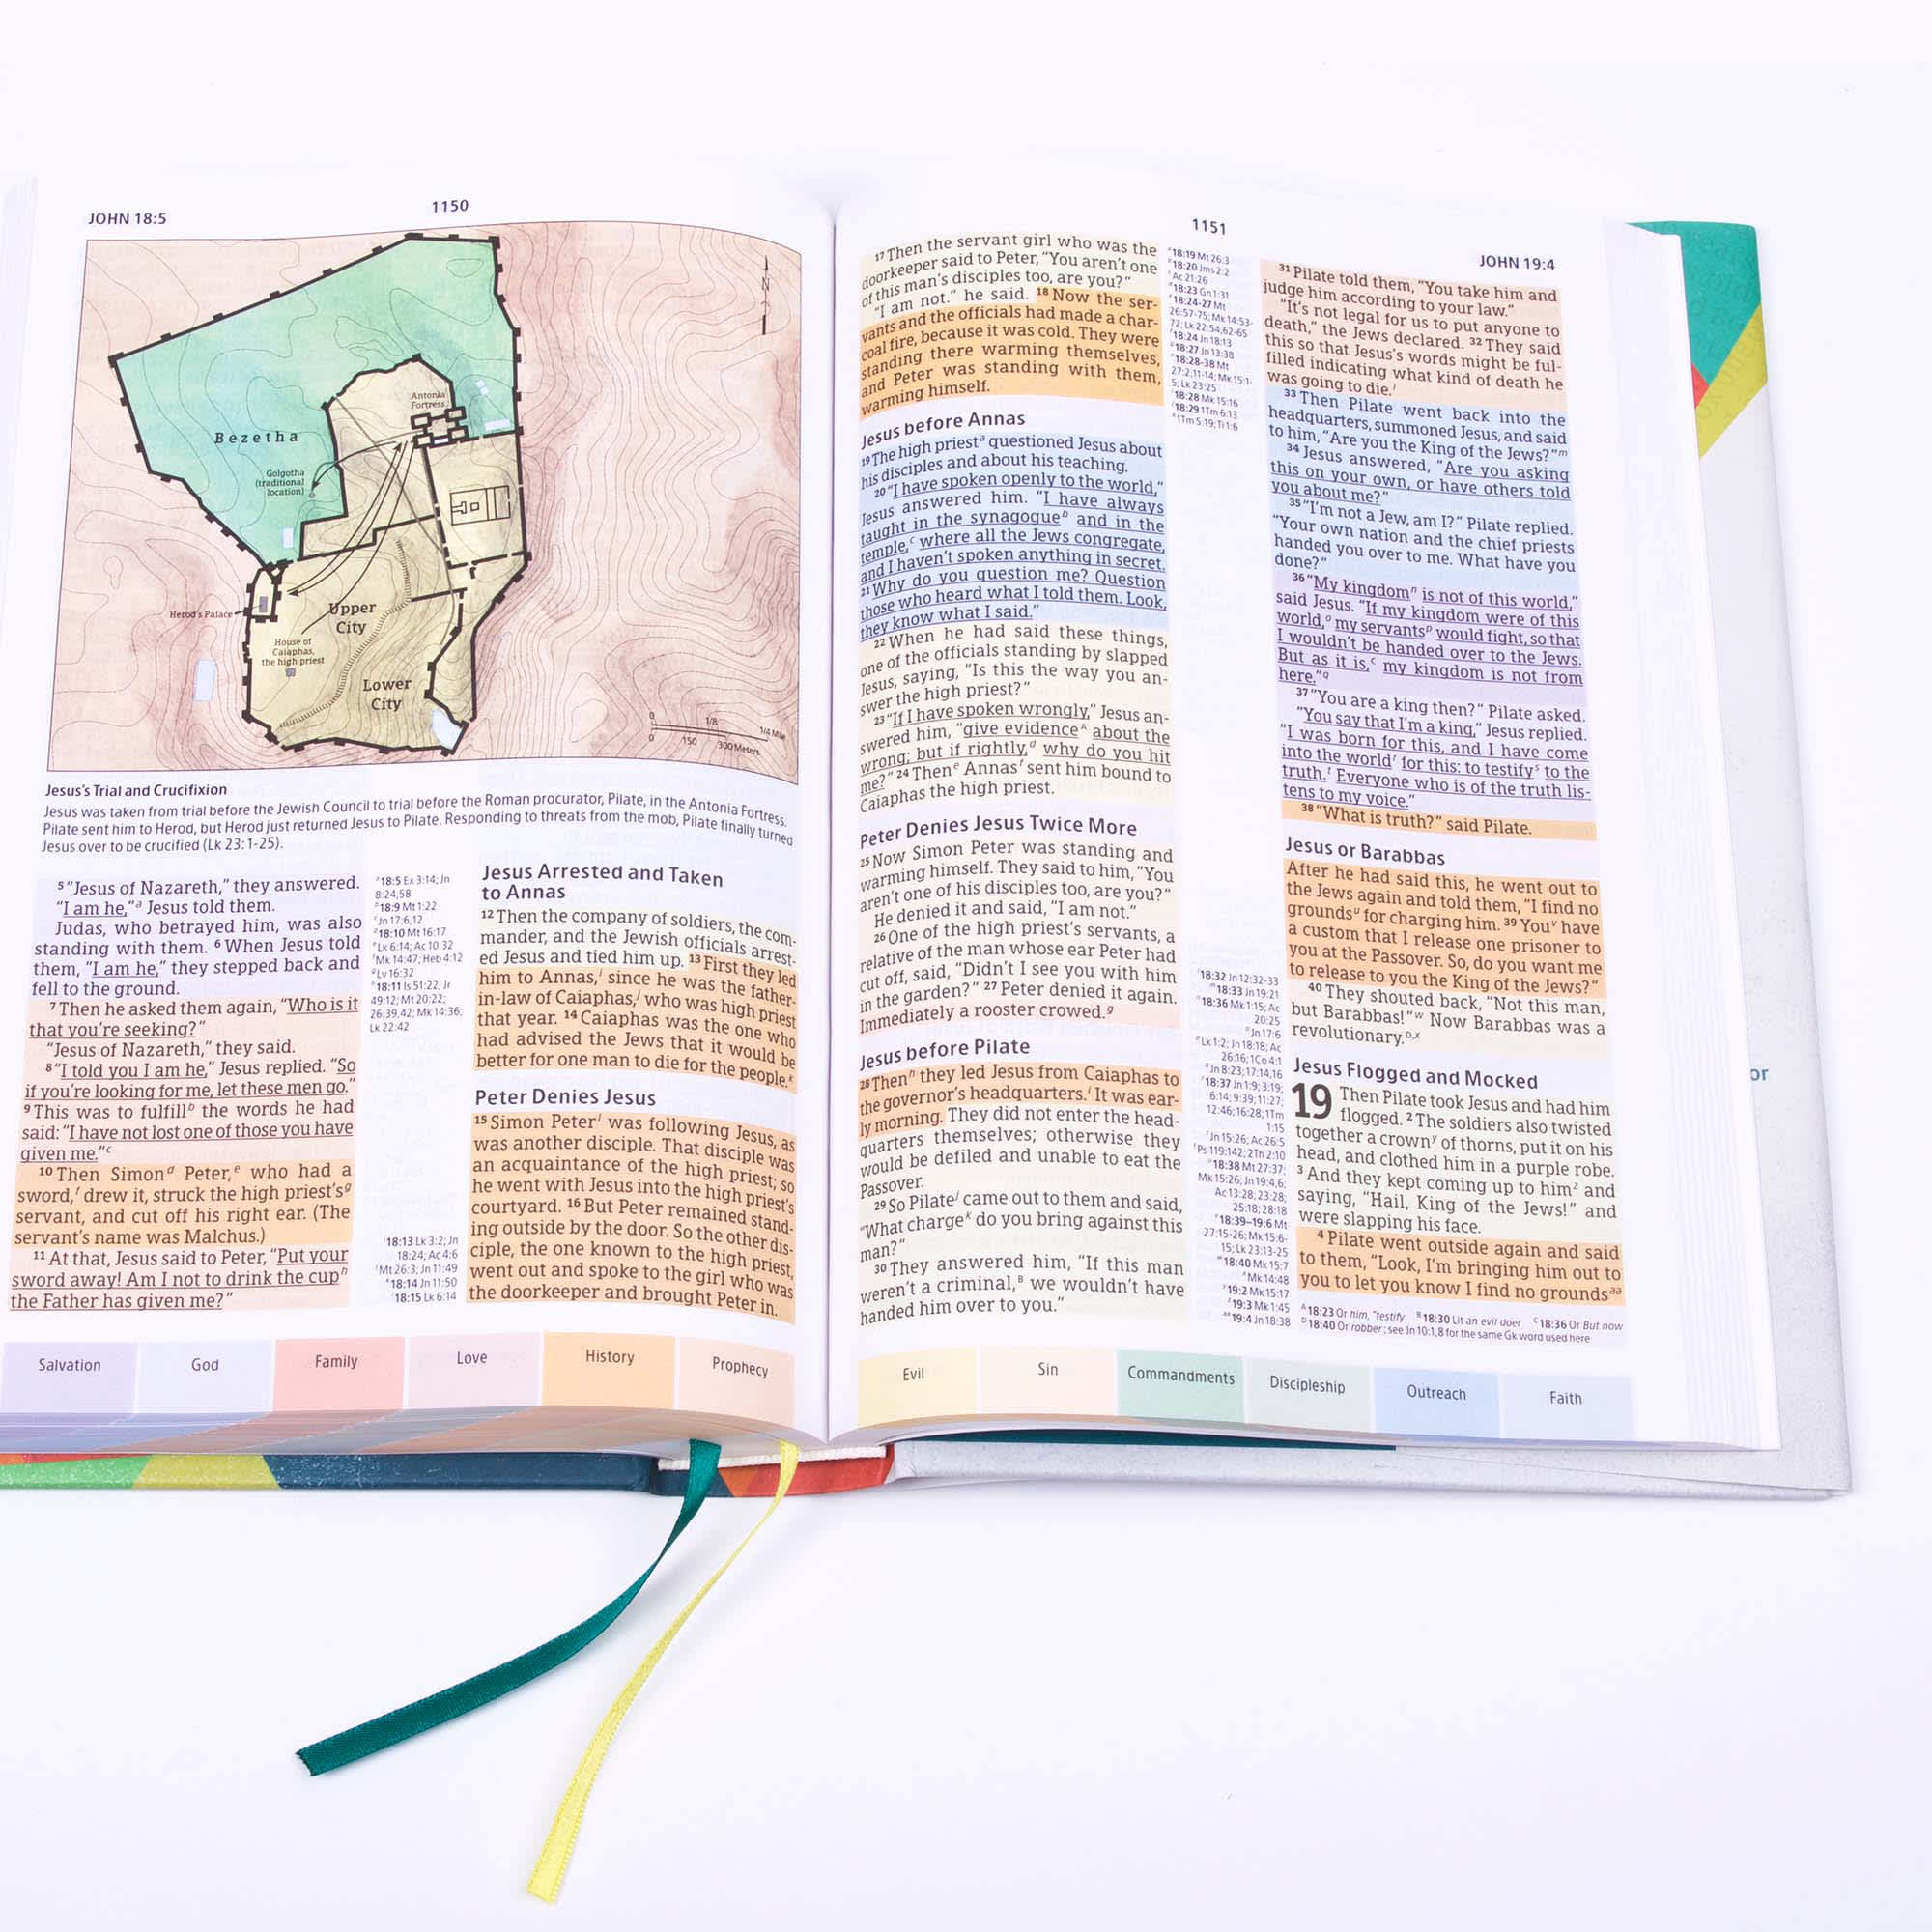 JOHN 18:5
1150
N
Antonia
Fortress
Bezetha
Golgotha
(traditional
location)
Herod's Palace
Upper
City
House of
Caiaphas,
the high priest
Lower
City
0 1/8 1/4 Mile
0 150 300 Meters
Jesus's Trial and Crucifixion
Jesus was taken from trial before the Jewish Council to trial before the Roman procurator, Pilate, in the Antonia Fortress.
Pilate sent him to Herod, but Herod just returned Jesus to Pilate. Responding to threats from the mob, Pilate finally turned
Jesus over to be crucified (Lk 23:1-25).
5 “Jesus of Nazareth,” they answered.
“I am he,”a Jesus told them.
Judas, who betrayed him, was also
standing with them. 6 When Jesus told
them, “I am he,” they stepped back and
fell to the ground.
7 Then he asked them again, “Who is it
that you’re seeking?”
“Jesus of Nazareth,” they said.
8 “I told you I am he,” Jesus replied. “So
if you’re looking for me, let these men go.”
9 This was to fulfillb the words he had
said: “I have not lost one of those you have
given me.”c
10 Then Simond Peter,e who had a
sword,f drew it, struck the high priest’sg
servant, and cut off his right ear. (The
servant’s name was Malchus.)
11 At that, Jesus said to Peter, “Put your
sword away! Am I not to drink the cuph
the Father has given me?”
a18:5 Ex 3:14; Jn
8:24,58
b18:9 Mt 1:22
cJn 17:6,12
d18:10 Mt 16:17
eLk 6:14; Ac 10:32
fMk 14:47; Heb 4:12
gLv 16:32
h18:11 Is 51:22; Jr
49:12; Mt 20:22;
26:39,42; Mk 14:36;
Lk 22:42
i18:13 Lk 3:2; Jn
18:24; Ac 4:6
jMt 26:3; Jn 11:49
k18:14 Jn 11:50
l18:15 Lk 6:14
Jesus Arrested and Taken
to Annas
12 Then the company of soldiers, the com-
mander, and the Jewish officials arrest-
ed Jesus and tied him up. 13 First they led
him to Annas,i since he was the father-
in-law of Caiaphas,j who was high priest
that year. 14 Caiaphas was the one who
had advised the Jews that it would be
better for one man to die for the people.k
Peter Denies Jesus
15 Simon Peterl was following Jesus, as
was another disciple. That disciple was
an acquaintance of the high priest; so
he went with Jesus into the high priest’s
courtyard. 16 But Peter remained stand-
ing outside by the door. So the other dis-
ciple, the one known to the high priest,
went out and spoke to the girl who was
the doorkeeper and brought Peter in.
Salvation God Family Love History Prophecy
1151
JOHN 19:4
17 Then the servant girl who was the
doorkeeper said to Peter, “You aren’t one
of this man’s disciples too, are you?”
“I am not.” he said. 18 Now the ser-
vants and the officials had made a char-
coal fire, because it was cold. They were
standing there warming themselves,
and Peter was standing with them,
warming himself.
Jesus before Annas
19 The high priesta questioned Jesus about
his disciples and about his teaching.
20 “I have spoken openly to the world,”
Jesus answered him. “I have always
taught in the synagogueb and in the
temple,c where all the Jews congregate,
and I haven’t spoken anything in secret.
21 Why do you question me? Question
those who heard what I told them. Look,
they know what I said.”
22 When he had said these things,
one of the officials standing by slapped
Jesus, saying, “Is this the way you an-
swer the high priest?”
23 “If I have spoken wrongly,” Jesus an-
swered him, “give evidenceA about the
wrong; but if rightly,d why do you hit
me?” 24 Thene Annasf sent him bound to
Caiaphas the high priest.
Peter Denies Jesus Twice More
25 Now Simon Peter was standing and
warming himself. They said to him, “You
aren’t one of his disciples too, are you?”
He denied it and said, “I am not.”
26 One of the high priest’s servants, a
relative of the man whose ear Peter had
cut off, said, “Didn’t I see you with him
in the garden?” 27 Peter denied it again.
Immediately a rooster crowed.g
Jesus before Pilate
28 Thenh they led Jesus from Caiaphas to
the governor’s headquarters.i It was ear-
ly morning. They did not enter the head-
quarters themselves; otherwise they
would be defiled and unable to eat the
Passover.
29 So Pilatej came out to them and said,
“What chargek do you bring against this
man?”
30 They answered him, “If this man
weren’t a criminal,B we wouldn’t have
handed him over to you.”
a18:19 Mt 26:3
b18:20 Jms 2:2
cAc 21:26
d18:23 Gn 1:31
e18:24-27 Mt
26:57-75; Mk 14:53-
72; Lk 22:54,62-65
f18:24 Jn 18:13
g18:27 Jn 13:38
h18:28-38 Mt
27:2,11-14; Mk 15:1-
5; Lk 23:25
i18:28 Mk 15:16
j18:29 1Tm 6:13
k1Tm 5:19; Ti 1:6
l18:32 Jn 12:32-33
m18:33 Jn 19:21
n18:36 Mk 1:15; Ac
20:25
oJn 17:6
pLk 1:2; Jn 18:18; Ac
26:16; 1Co 4:1
qJn 8:23; 17:14,16
r18:37 Jn 1:9; 3:19;
6:14; 9:39; 11:27;
12:46; 16:28; 1Tm
1:15
sJn 15:26; Ac 26:5
tPs 119:142; 2Th 2:10
u18:38 Mt 27:37;
Mk 15:26; Jn 19:4,6;
Ac 13:28; 23:28;
25:18; 28:18
v18:39–19:6 Mt
27:15-26; Mk 15:6-
15; Lk 23:13-25
w18:40 Mk 15:7
xMk 14:48
y19:2 Mk 15:17
z19:3 Mk 1:45
aa19:4 Jn 18:38
31 Pilate told them, “You take him and
judge him according to your law.”
“It’s not legal for us to put anyone to
death,” the Jews declared. 32 They said
this so that Jesus’s words might be ful-
filled indicating what kind of death he
was going to die.l
33 Then Pilate went back into the
headquarters, summoned Jesus, and said
to him, “Are you the King of the Jews?”m
34 Jesus answered, “Are you asking
this on your own, or have others told
you about me?”
35 “I’m not a Jew, am I?” Pilate replied.
“Your own nation and the chief priests
handed you over to me. What have you
done?”
36 “My kingdomn is not of this world,”
said Jesus. “If my kingdom were of this
world,o my servantsp would fight, so that
I wouldn’t be handed over to the Jews.
But as it is,C my kingdom is not from
here.”q
37 “You are a king then?” Pilate asked.
“You say that I’m a king,” Jesus replied.
“I was born for this, and I have come
into the worldr for this: to testifys to the
truth.t Everyone who is of the truth lis-
tens to my voice.”
38 “What is truth?” said Pilate.
Jesus or Barabbas
After he had said this, he went out to
the Jews again and told them, “I find no
groundsu for charging him. 39 Youv have
a custom that I release one prisoner to
you at the Passover. So, do you want me
to release to you the King of the Jews?”
40 They shouted back, “Not this man,
but Barabbas!”w Now Barabbas was a
revolutionary.D,x
Jesus Flogged and Mocked
19 Then Pilate took Jesus and had him
flogged. 2 The soldiers also twisted
together a crowny of thorns, put it on his
head, and clothed him in a purple robe.
3 And they kept coming up to himz and
saying, “Hail, King of the Jews!” and
were slapping his face.
4 Pilate went outside again and said
to them, “Look, I’m bringing him out to
you to let you know I find no groundsaa
A18:23 Or him, “testify B18:30 Lit an evil doer C18:36 Or But now
D18:40 Or robber; see Jn 10:1,8 for the same Gk word used here
Evil Sin Commandments Discipleship Outreach Faith
or